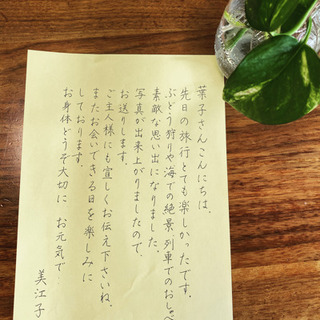 葉子さんこんにちは、
先日の旅行とても楽しかったです。
ぶどう狩りや海での絶景、列車でのおしゃべ
素敵な思い出になりました。
写真が出来上がりましたので、
お送りします。
ご主人様にも宜しくお伝え下さいね。
またお会いできる日を楽しみに
しております。
お身体どうそ大切に　お元気で
美江子